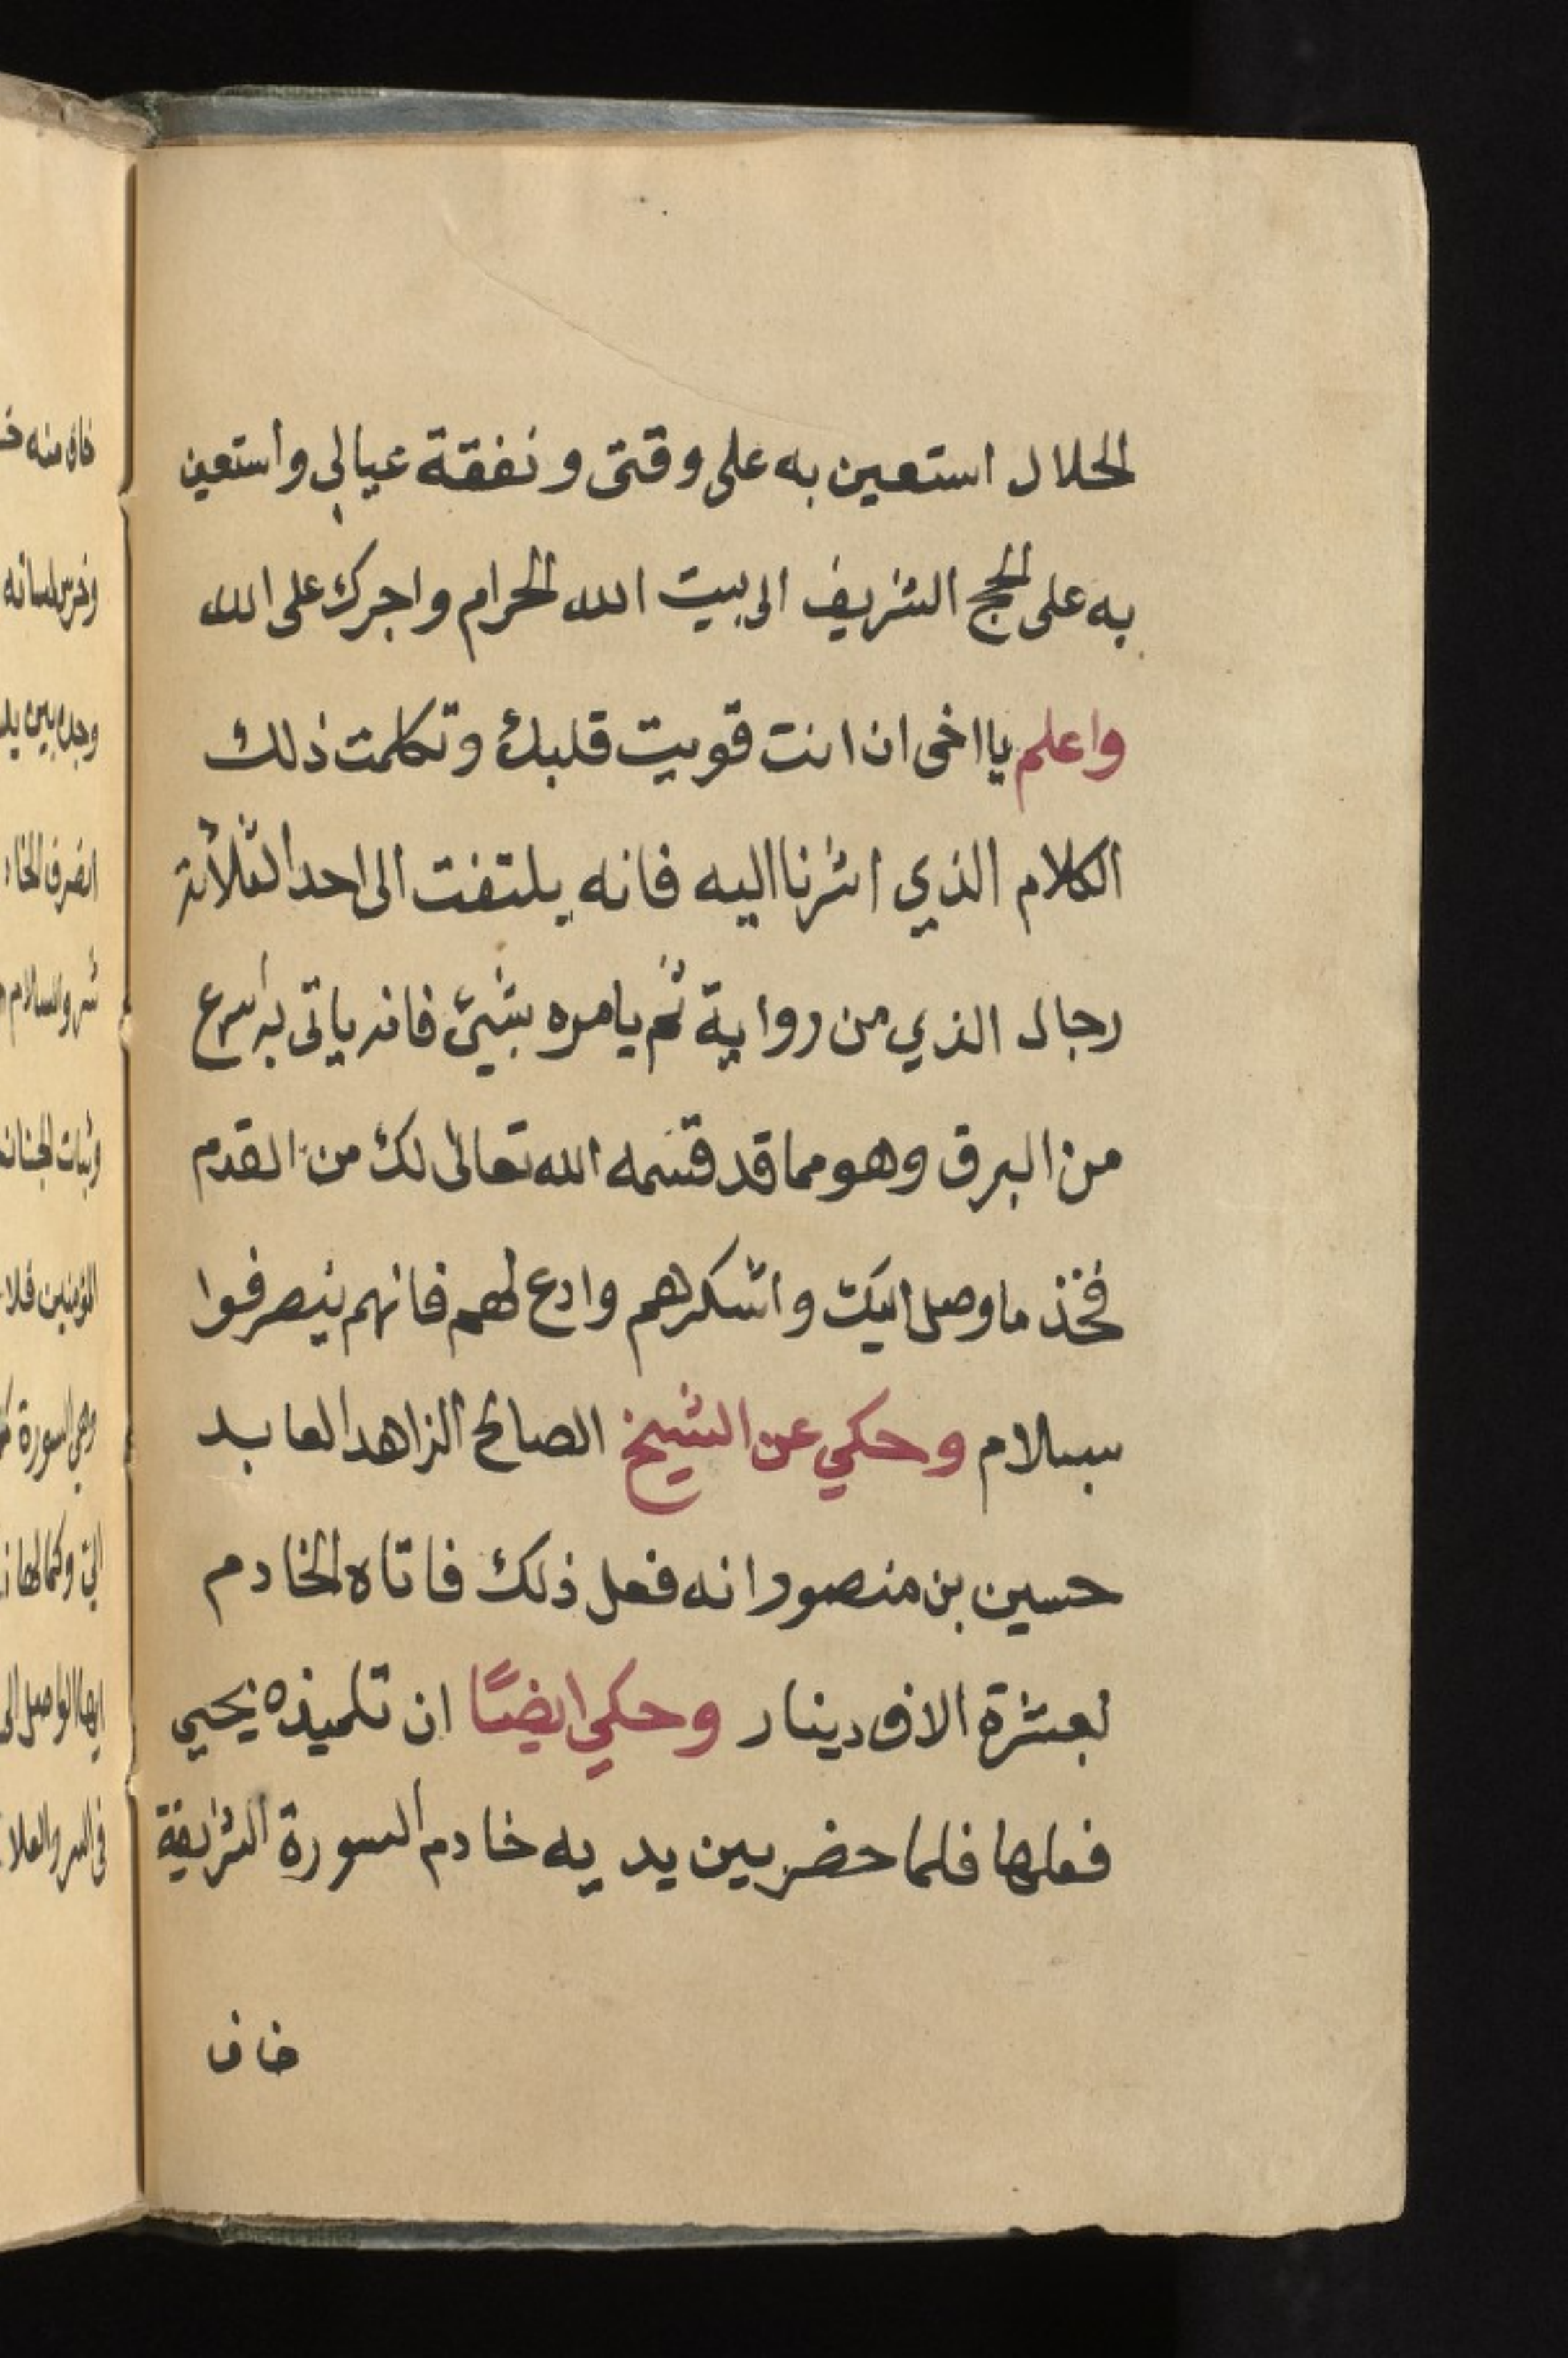 الحلال استعين به على وقتى ونفقة عيالي وأستعين
به على الحج الشريف الى بيت الله الحرام واجرك على الله
واعلم يا اخى ان انت قويت قلبك وتكلمت ذلك
الكلام الذي اشرنا اليه فانه يلتفت الى احد الثلاثة
رجال الذي من رواية ثم يامره بشيئ فانه ياتى به اسرع
من البرق وهو مما قد قسمه الله تعالى لك من القدم
فخذ ما وصل اليك واشكرهم وادع لهم فانهم ينصرفوا
بسلام وحكي عن الشيخ الصالح الزاهد العابد
حسين بن منصور انه فعل ذلك فاتاه الخادم
بعشرة الاف دينار وحكي ايضًا ان تلميذه يحيي
فعلها فلما حضر بين يديه خادم السورة الشريفة
خاف
خاف منه
وخرس لسانه
وجده بين
انصرف
والسلام
وثبات
المؤمنين فلا
وهي السورة
ايها الواصل الى